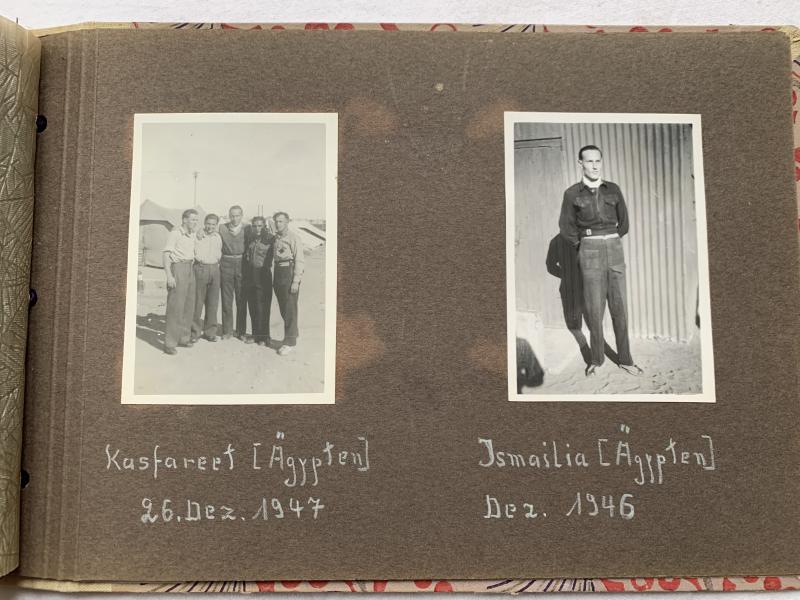 Kasfareet [Ägypten]
26. Dez. 1947
Ismailia [Ägypten]
Dez. 1946